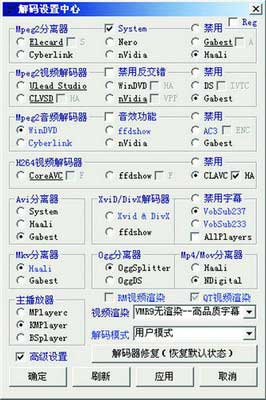 解码设置中心
Mpeg2分离器 System 禁用 Reg
Elecard S Nero Gabest A
Cyberlink nVidia Haali
Mpeg2视频解码器 禁用反交错 禁用
Ulead Studio WinDVD HA DS IVTC
CLVSD HA nVidia VPP Gabest
Mpeg2音频解码器 音效功能 禁用
WinDVD ffdshow AC3 ENC
Cyberlink nVidia Gabest
H264视频解码器 禁用
CoreAVC F ffdshow F CLAVC HA
Avi分离器 XviD/DivX解码器 禁用字幕
System Xvid & DivX VobSub237
Haali VobSub233
Gabest ffdshow AllPlayers
Mkv分离器 Ogg分离器 Mp4/Mov分离器
Haali OggSplitter Haali
Gabest OggDS NDigital
主播放器 RM视频渲染 QT视频渲染
MPlayerc 视频渲染 VMR9无渲染--高品质字幕
KMPlayer 解码模式 用户模式
BSplayer
高级设置 解码器修复(恢复默认状态)
确定 刷新 应用 取消